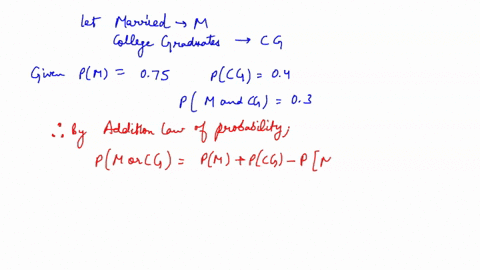 let Married → M
College Graduates → CG
Given P(M) = 0.75 P(CG) = 0.4
P( M and CG) = 0.3
∴ By Addition law of probability;
P(M or CG) = P(M) + P(CG) - P[M